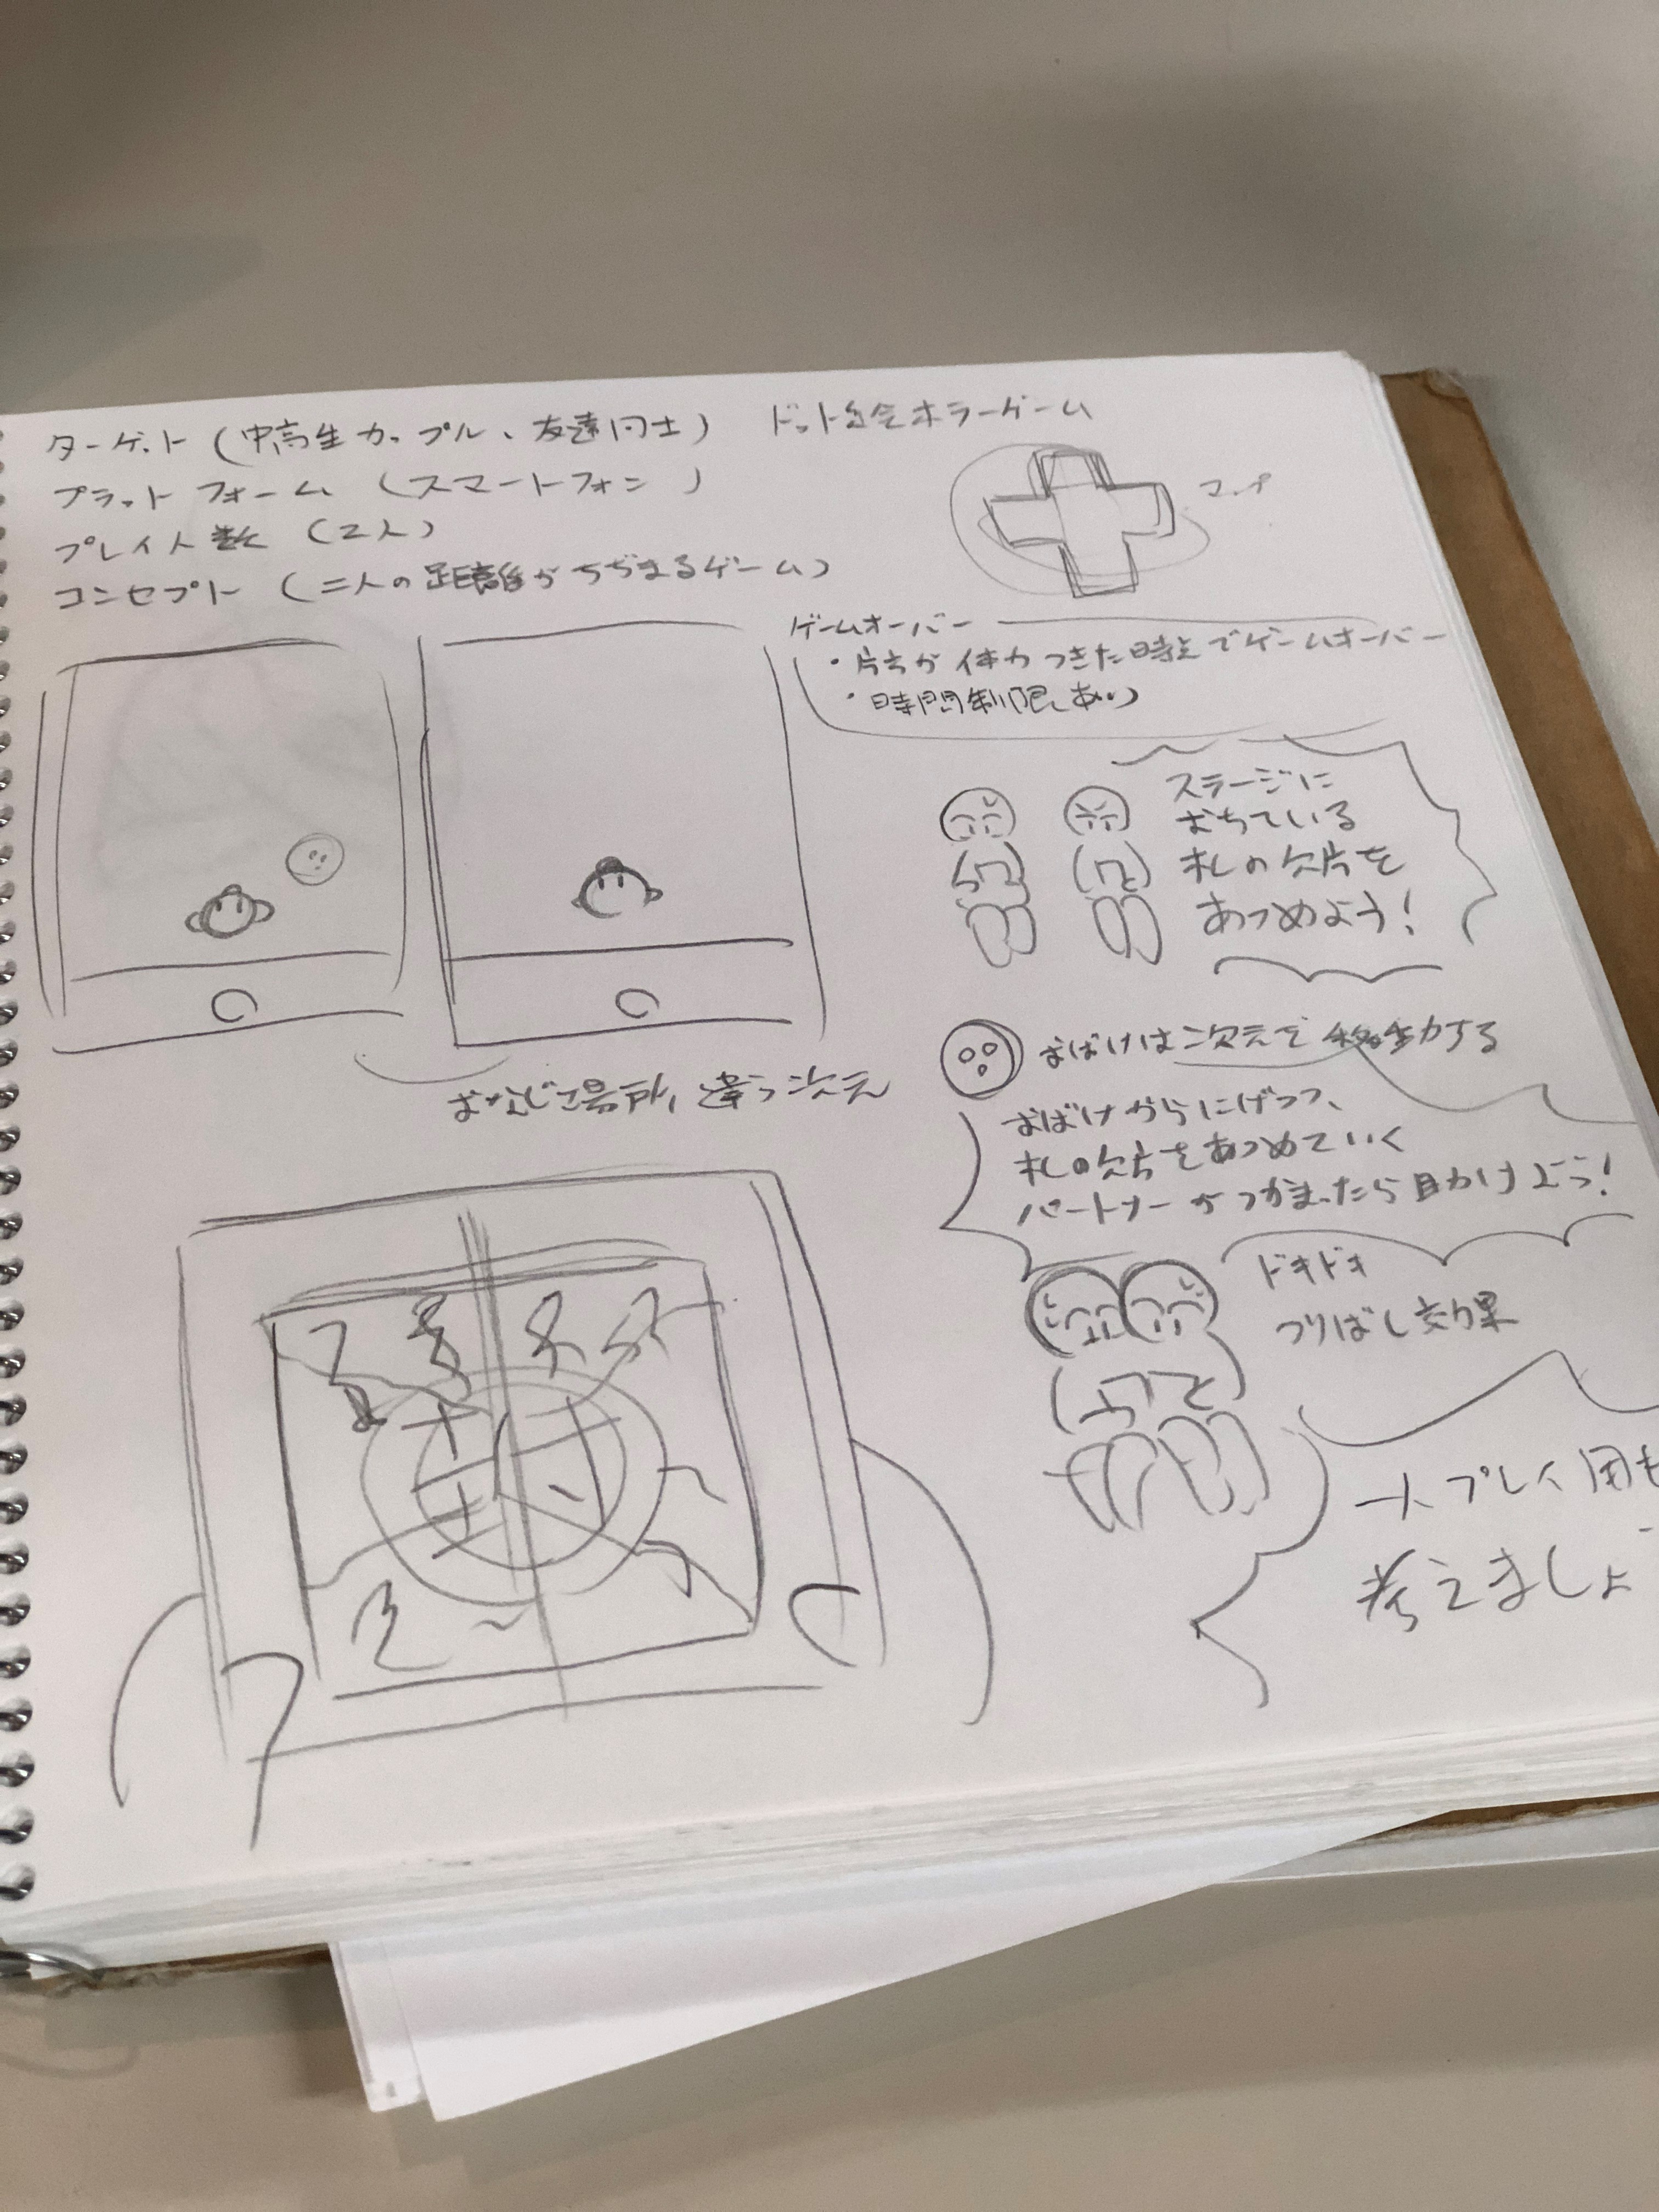 ターゲット（中高生カップル、友達同士）
ドット絵ホラーゲーム
プラットフォーム（スマートフォン）
プレイ人数（2人）
コンセプト（二人の距離がちぢまるゲーム）
マップ
ゲームオーバー
・片方が体力つきた時点でゲームオーバー
・時間制限あり
ステージに
おちている
札の欠片を
あつめよう！
おばけは次元を移動する
おなじ場所、違う次元
おばけからにげつつ、
札の欠片をあつめていく
パートナーがつかまったら助けよう！
ドキドキ
つりばし効果
一人プレイ用も
考えましょ